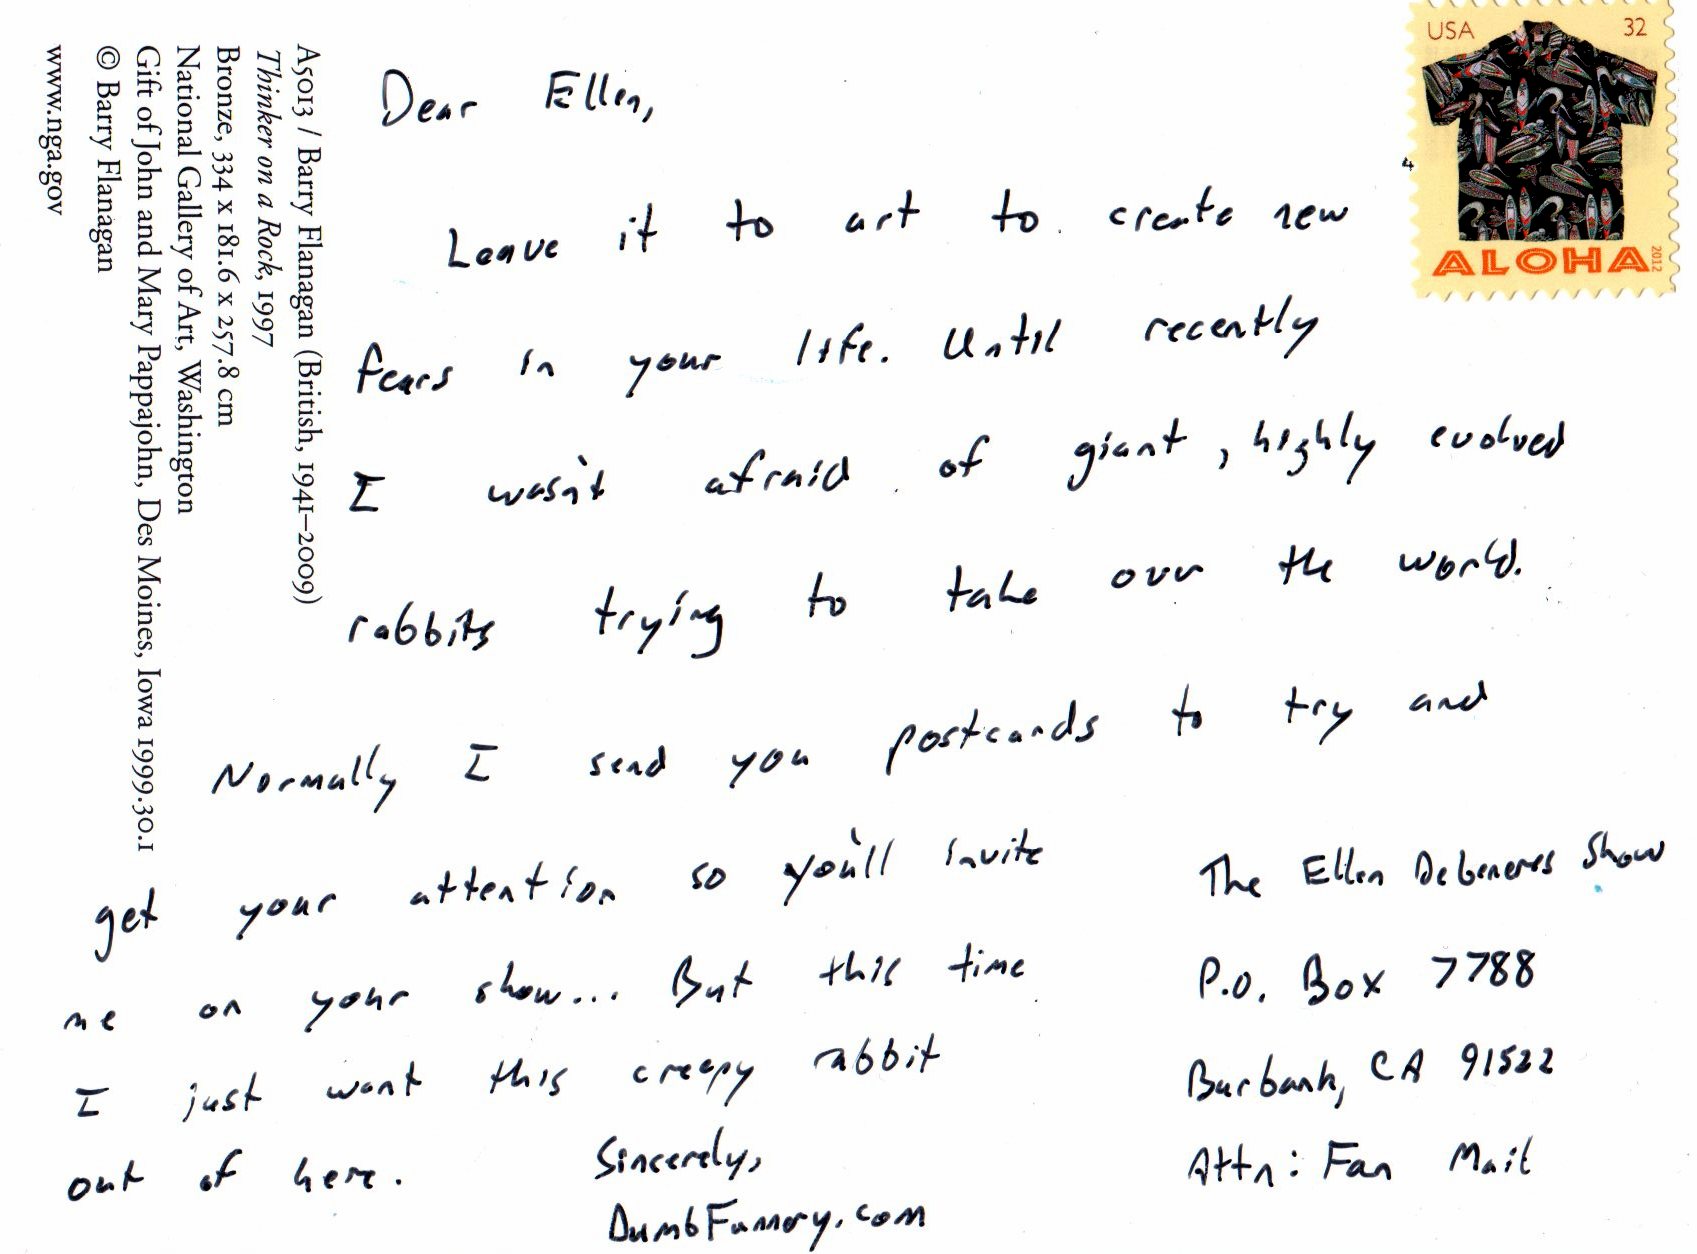 A5013 / Barry Flanagan (British, 1941–2009)
Thinker on a Rock, 1997
Bronze, 334 x 181.6 x 257.8 cm
National Gallery of Art, Washington
Gift of John and Mary Pappajohn, Des Moines, Iowa 1999.30.1
© Barry Flanagan
www.nga.gov
USA 32
ALOHA
2012
Dear Ellen,
Leave it to art to create new
fears in your life. Until recently
I wasn't afraid of giant, highly evolved
rabbits trying to take over the world.
Normally I send you postcards to try and
get your attention so you'll invite
me on your show... But this time
I just want this creepy rabbit
out of here.
Sincerely,
DumbFunnery.com
The Ellen DeGeneres Show
P.O. Box 7788
Burbank, CA 91522
Attn: Fan Mail